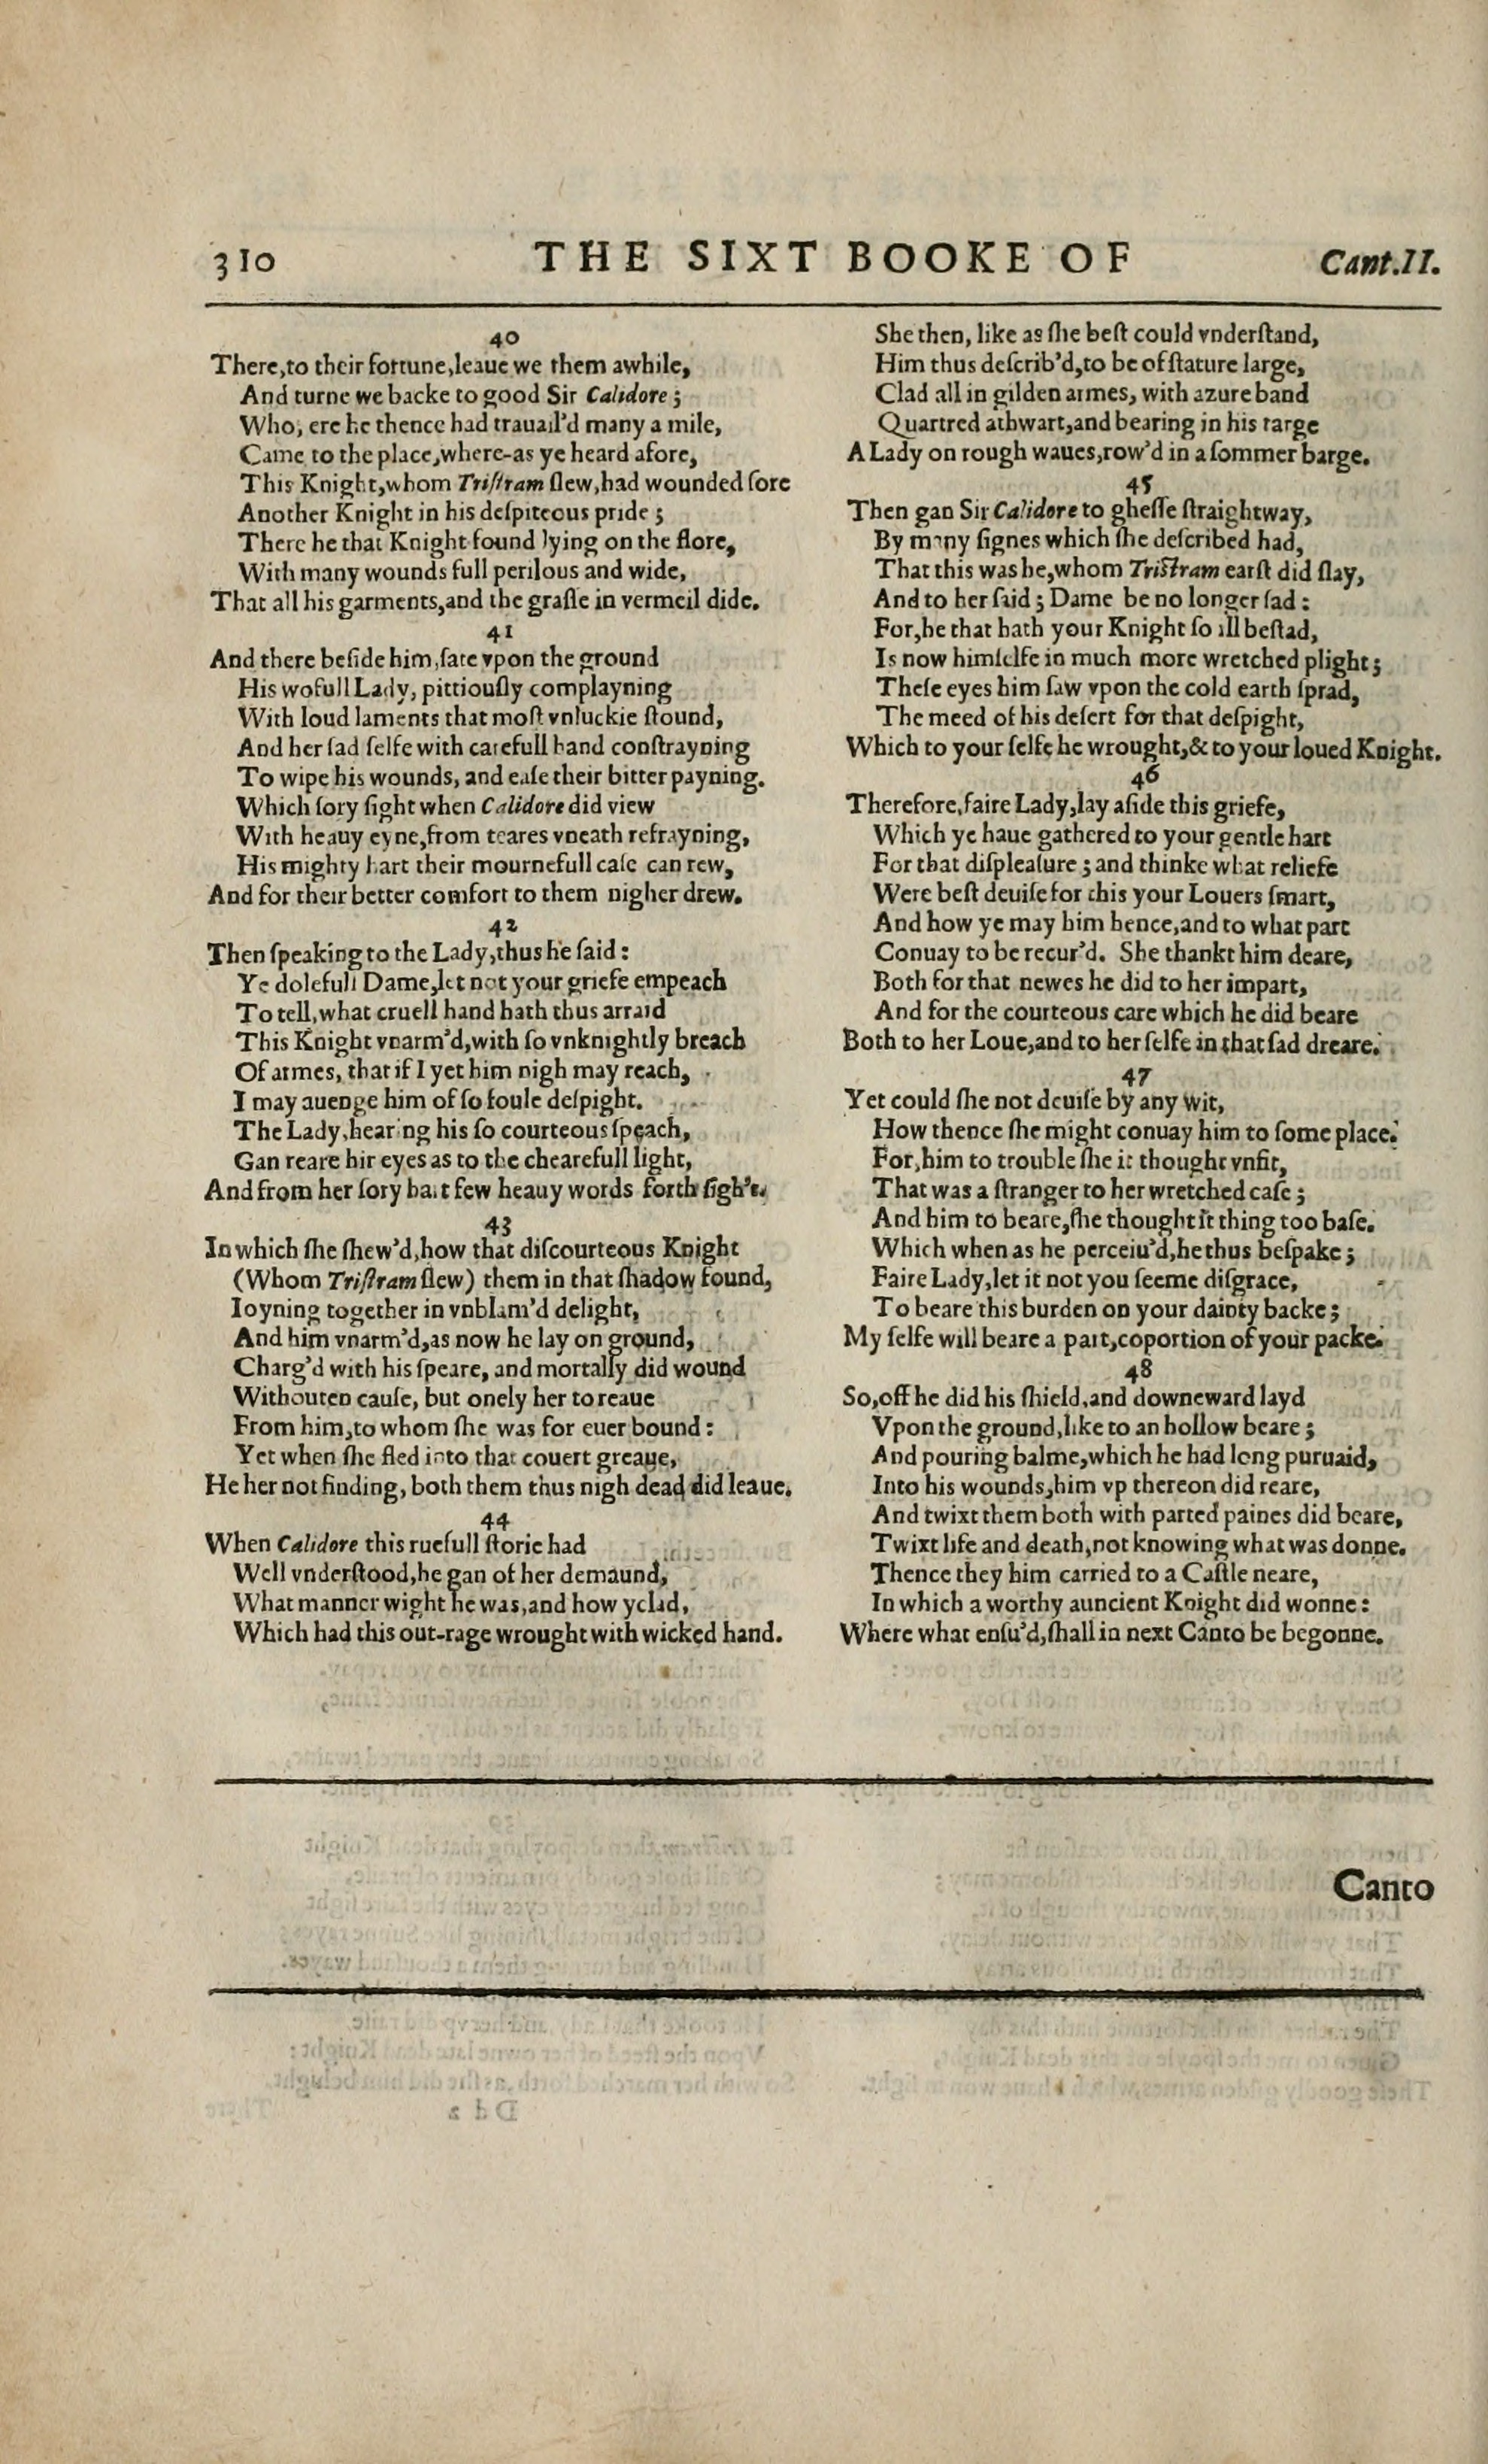 310 THE SIXT BOOKE OF Cant.II.
40
There,to their fortune,leaue we them awhile,
And turne we backe to good Sir Calidore ;
Who, ere he thence had trauail'd many a mile,
Came to the place,where-as ye heard afore,
This Knight,whom Triſtram ſlew,had wounded ſore
Another Knight in his deſpiteous pride ;
There he that Knight found lying on the flore,
With many wounds full perilous and wide,
That all his garments,and the graſſe in vermeil dide.
41
And there beſide him,ſate vpon the ground
His wofull Lady, pittiouſly complayning
With loud laments that moſt vnluckie ſtound,
And her ſad ſelfe with carefull hand conſtrayning
To wipe his wounds, and eaſe their bitter payning.
Which ſory ſight when Calidore did view
With heauy eyne,from teares vneath refrayning,
His mighty hart their mournefull caſe can rew,
And for their better comfort to them nigher drew.
42
Then ſpeaking to the Lady,thus he ſaid :
Ye dolefull Dame,let not your griefe empeach
To tell,what cruell hand hath thus arraid
This Knight vnarm'd,with ſo vnknightly breach
Of armes, that if I yet him nigh may reach,
I may auenge him of ſo foule deſpight.
The Lady,hearing his ſo courteous ſpeach,
Gan reare hir eyes as to the chearefull light,
And from her ſory hart few heauy words forth ſigh't.
43
In which ſhe ſhew'd,how that diſcourteous Knight
(Whom Triſtram ſlew) them in that ſhadow found,
Ioyning together in vnblam'd delight,
And him vnarm'd,as now he lay on ground,
Charg'd with his ſpeare, and mortally did wound
Withouten cauſe, but onely her to reaue
From him,to whom ſhe was for euer bound :
Yet when ſhe fled into that couert greaue,
He her not finding, both them thus nigh dead did leaue.
44
When Calidore this ruefull ſtorie had
Well vnderſtood,he gan of her demaund,
What manner wight he was,and how yclad,
Which had this out-rage wrought with wicked hand.
She then, like as ſhe beſt could vnderſtand,
Him thus deſcrib'd,to be of ſtature large,
Clad all in gilden armes, with azure band
Quartred athwart,and bearing in his targe
A Lady on rough waues,row'd in a ſommer barge.
45
Then gan Sir Calidore to gheſſe ſtraightway,
By many ſignes which ſhe deſcribed had,
That this was he,whom Triſtram earſt did ſlay,
And to her ſaid ; Dame be no longer ſad :
For,he that hath your Knight ſo ill beſtad,
Is now himſelfe in much more wretched plight ;
Theſe eyes him ſaw vpon the cold earth ſprad,
The meed of his deſert for that deſpight,
Which to your ſelfe he wrought,& to your loued Knight.
46
Therefore,faire Lady,lay aſide this griefe,
Which ye haue gathered to your gentle hart
For that diſpleaſure ; and thinke what reliefe
Were beſt deuiſe for this your Louers ſmart,
And how ye may him hence,and to what part
Conuay to be recur'd. She thankt him deare,
Both for that newes he did to her impart,
And for the courteous care which he did beare
Both to her Loue,and to her ſelfe in that ſad dreare.
47
Yet could ſhe not deuiſe by any wit,
How thence ſhe might conuay him to ſome place.
For,him to trouble ſhe it thought vnfit,
That was a ſtranger to her wretched caſe ;
And him to beare,ſhe thought it thing too baſe.
Which when as he perceiu'd,he thus beſpake ;
Faire Lady,let it not you ſeeme diſgrace,
To beare this burden on your dainty backe ;
My ſelfe will beare a part,coportion of your packe.
48
So,off he did his ſhield,and downeward layd
Vpon the ground,like to an hollow beare ;
And pouring balme,which he had long puruaid,
Into his wounds,him vp thereon did reare,
And twixt them both with parted paines did beare,
Twixt life and death,not knowing what was donne.
Thence they him carried to a Caſtle neare,
In which a worthy auncient Knight did wonne :
Where what enſu'd,ſhall in next Canto be begonne.
Canto